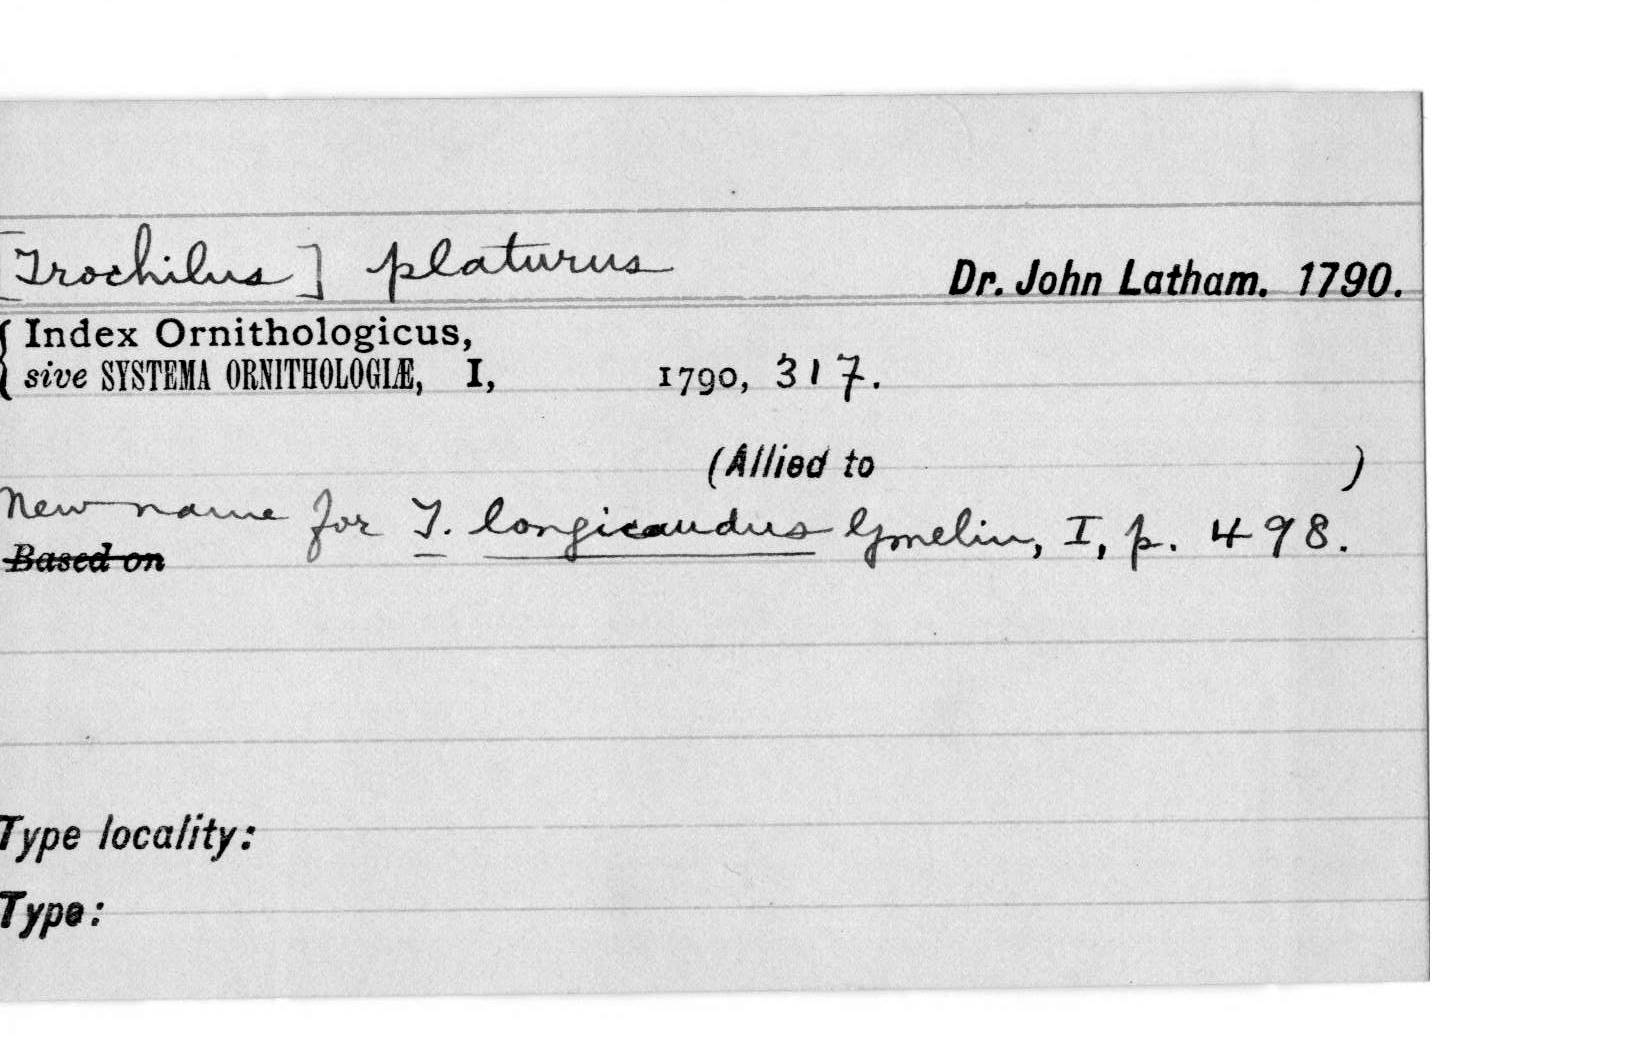 [Trochilus] platurus Dr. John Latham. 1790.
Index Ornithologicus,
sive SYSTEMA ORNITHOLOGIÆ, I, 1790, 317.
(Allied to )
New name for T. longicaudus Gmelin, I, p. 498.
Based on
Type locality:
Type: